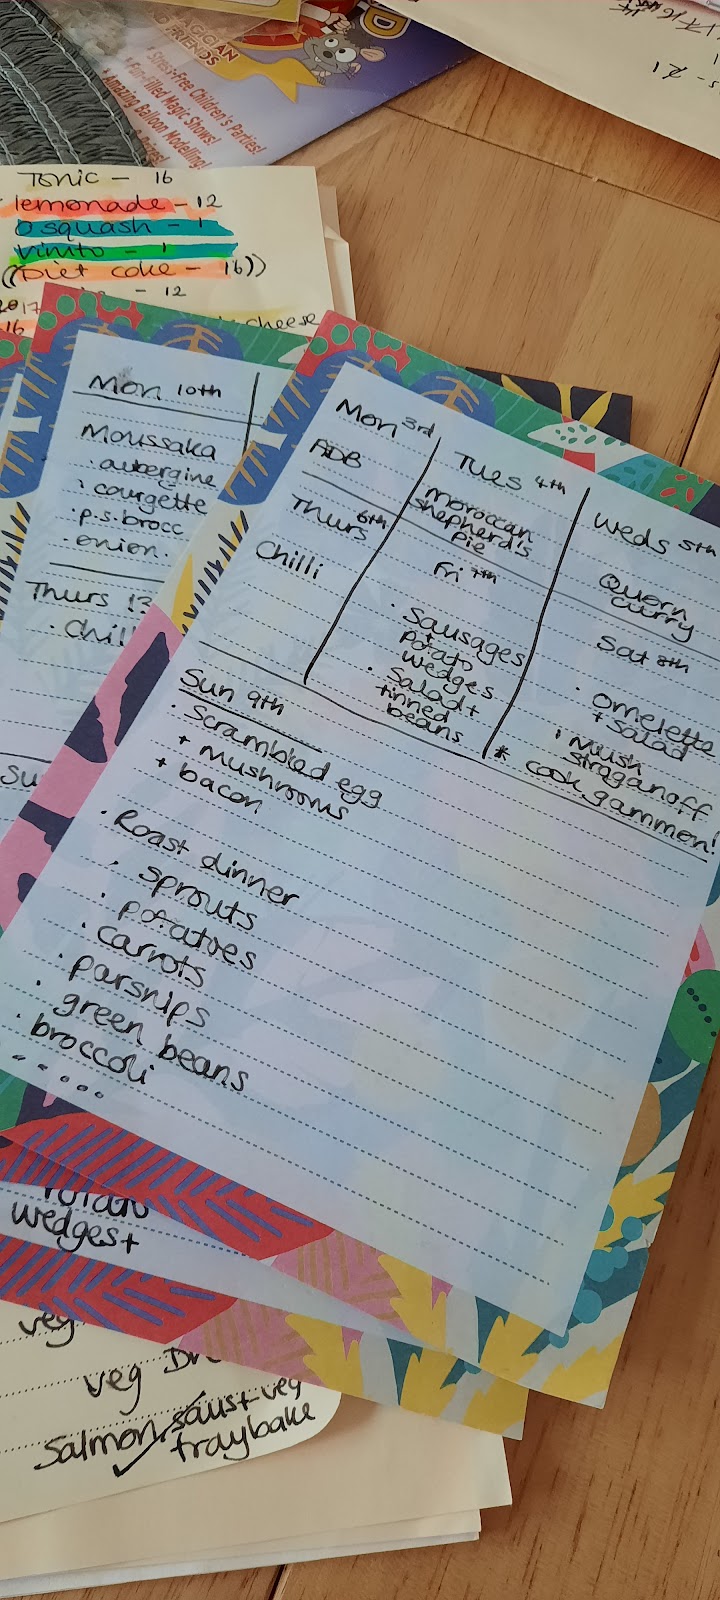 MAGICIAN
& FRIENDS
* Stress-Free Children's Parties!
* Fun-Filled Magic Shows!
* Amazing Balloon Modelling!
Tonic - 16
lemonade - 12
O squash - 1
Vimto - 1
((Diet coke - 16))
- 12
cheese
16
Mon 10th
Moussaka
· aubergine
· courgette
· p.s. brocc
· onion.
Thurs 13
· Chill
Su
Potato
wedges +
Mon 3rd
Tues 4th
Weds 5th
Moroccan
shepherd's
pie
Quorn
curry
Thurs 6th
Fri 7th
Sat 8th
Chilli
· Sausages
+
potato
wedges
· Salad +
tinned
beans
· omelette
+ salad
· Mush
straganoff
* cook gammon!
Sun 9th
· Scrambled egg
+ mushrooms
+ bacon
· Roast dinner
· sprouts
· potatoes
· carrots
· parsnips
· green beans
· broccoli
veg
veg
Salmon, saus + veg
traybake